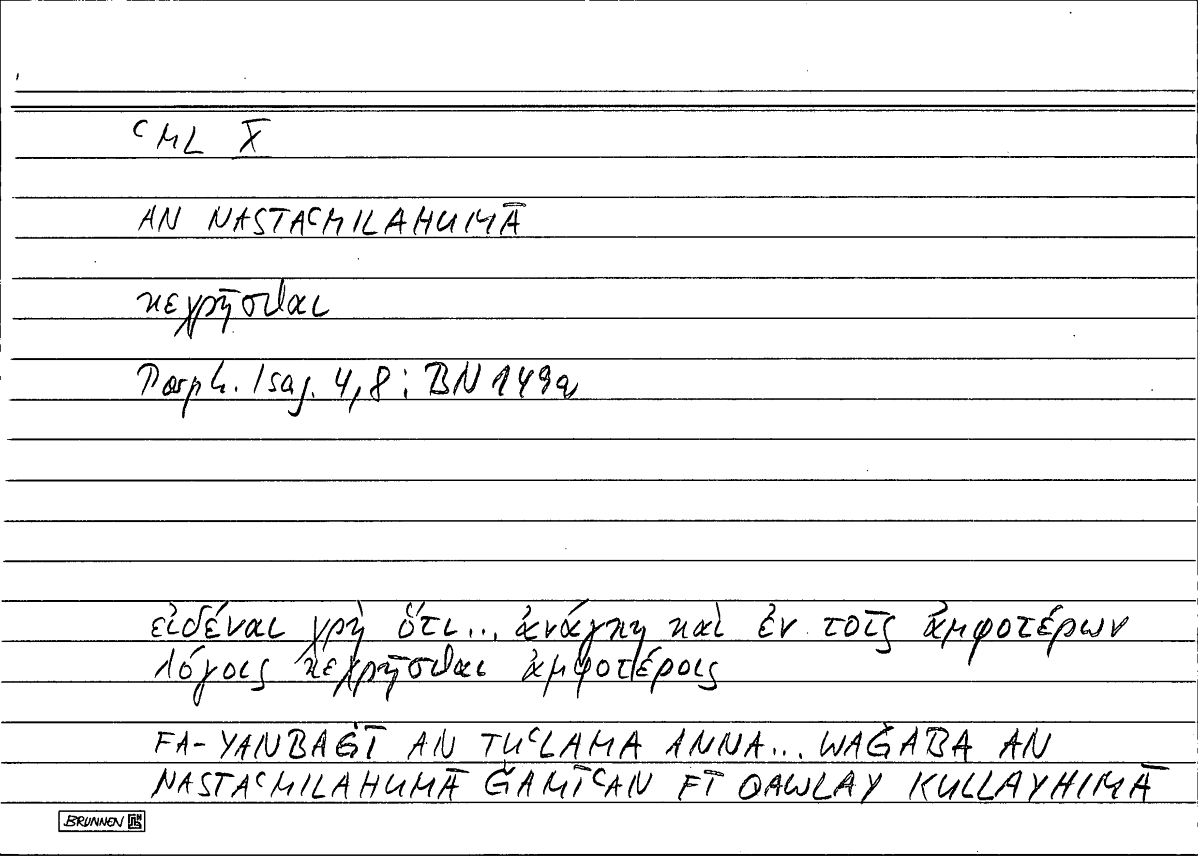 ʿML X̅
AN NASTAʿMILAHUMĀ
κεχρῆσθαι
Porph. Isag. 4,8 : BN 149a
εἰδέναι χρὴ ὅτι... ἀνάγκη καὶ ἐν τοῖς ἀμφοτέρων
λόγοις κεχρῆσθαι ἀμφοτέροις
FA-YANBAĠĪ AN TUʿLAMA ANNA... WAǦABA AN
NASTAʿMILAHUMĀ ǦAMĪʿAN FĪ QAWLAY KULLAYHIMĀ
BRUNNEN